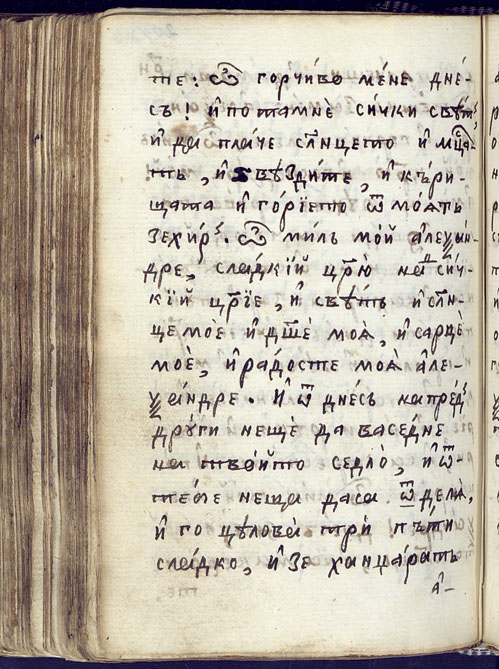 те: Ѽ горчиво мене дне-
съ! и потамнѐ сички свѣтъ,
и да плаче слⷩ҇цето и мцⷭ҇а-
тъ, и ѕвѣздите, и къри-
щата и горїето ѿ моятъ
зехирꙿ. Ѽ милъ мой алеѯан-
дре, сладкїй цр҃ю надⷣ сич-
кїй цр҃їе, и свѣтъ и слⷩ҇-
це моѐ и дш҃е моѧ, и сарцѐ
моѐ, и радосте моѧ але-
ѯандре. И ѿ днесъ напредꙿ
други нещѐ да васедне
на твойто седлѐ, и ѿ-
тебе неща даса ѿделѧ,
и го цѣлова три пъти
сладко, и зе ханцаратъ
а҆-